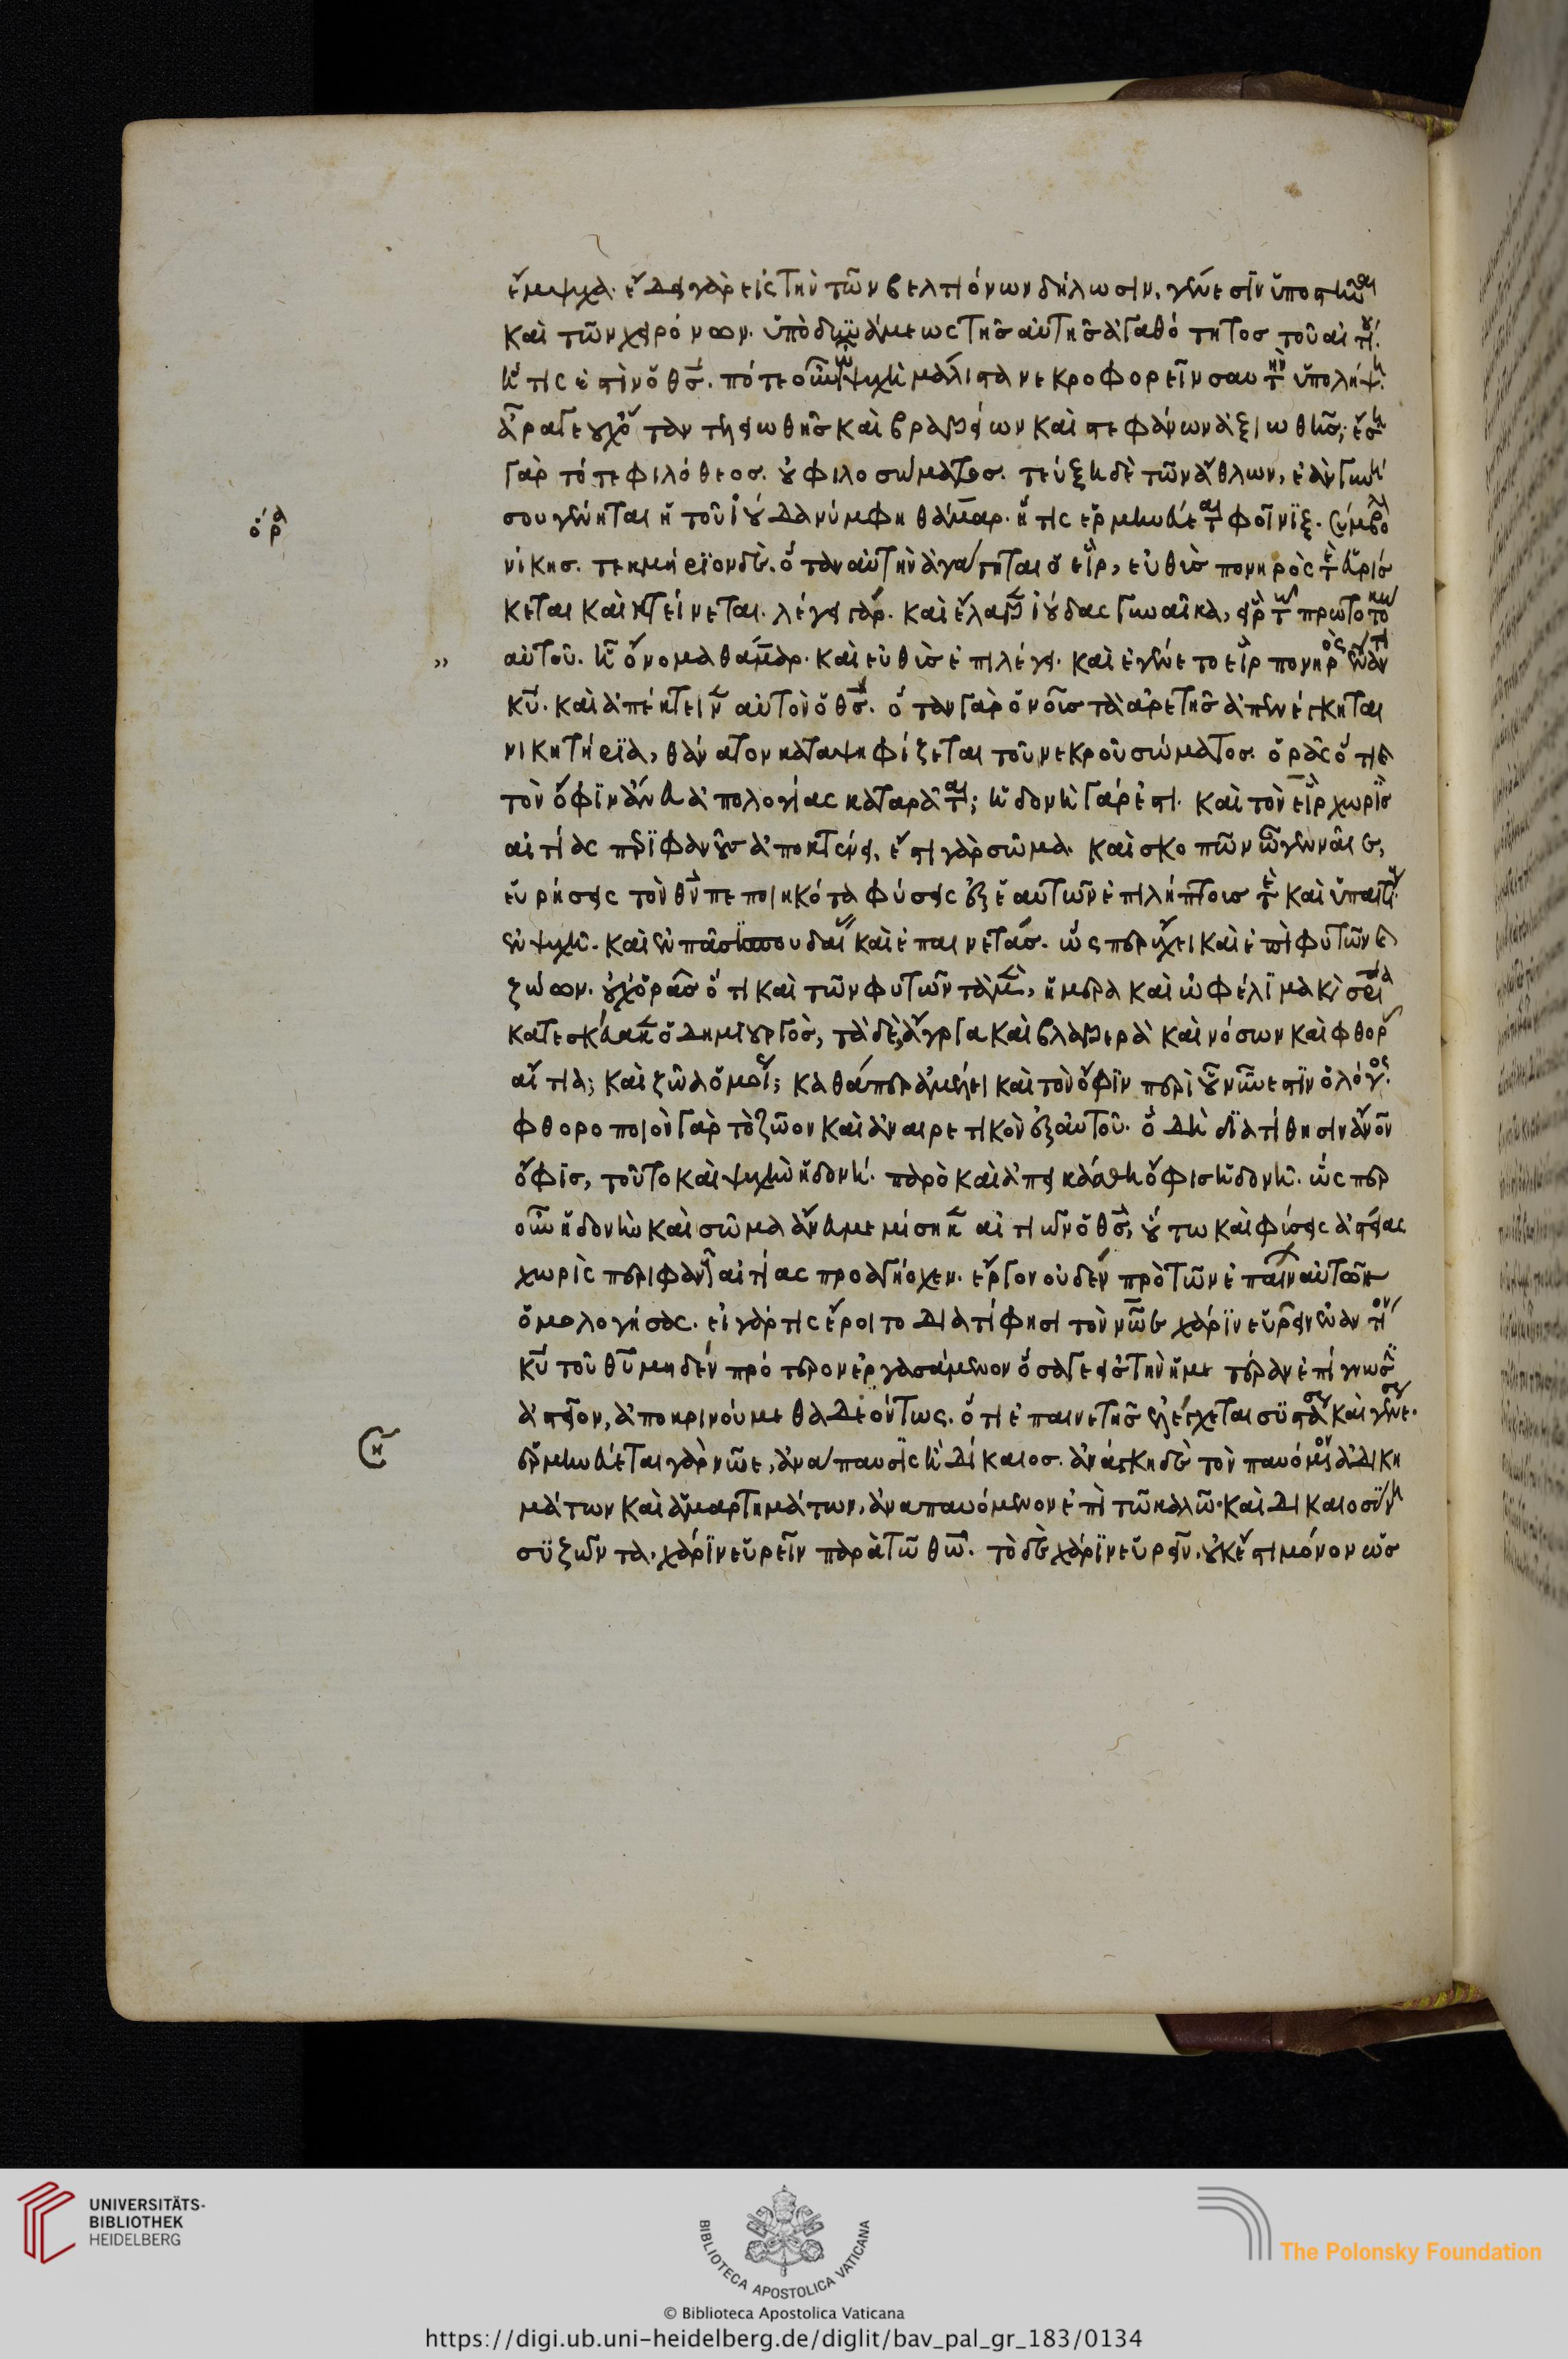 ἔμψυχα. ἔδει γὰρ εἰς τὴν τῶν βελτιόνων δήλωσιν, γένεσιν ὑποστῆναι
καὶ τῶν χειρόνων. ὑπὸ δυνάμεως τῆς αὐτῆς ἀγαθότητος τοῦ αἰτίου.
ἥτις ἐστὶν ὁ θς. πότε οὖν ὦ ψυχὴ μάλιστα νεκροφορεῖν σαυτὴν ὑπολήψη.
ἆρα γε οὐχ ὅταν τελειωθῆς καὶ βραβείων καὶ στεφάνων ἀξιωθῆς; ἔση
γὰρ τότε φιλόθεος. οὐ φιλοσώματος. τεύξη δὲ τῶν ἄθλων, ἐὰν γυνή
ὅρα
σου γένηται ἡ τοῦ ἰούδα νύμφη θάμαρ. ἥτις ἑρμηνεύεται φοῖνιξ. σύμβολον
νίκης. τεκμήριον δέ. ὅταν αὐτὴν ἀγάγηται ὁ εἴρ, εὐθὺς πονηρός τε εὑρίσ
κεται καὶ κτείνεται. λέγει γάρ. καὶ ἔλαβεν ἰούδας γυναῖκα, εἲρ τῶ πρωτοτόκω
„ αὐτοῦ. ἧ ὄνομα θάμαρ. καὶ εὐθὺς ἐπιλέγει. καὶ ἐγένετο εἲρ πονηρὸς ἐναντι
κυ. καὶ ἀπέκτεινεν αὐτὸν ὁ θς. ὅταν γὰρ ὁ νοῦς τὰ ἀρετῆς ἀπενέγκηται
νικητήρια, θάνατον καταψηφίζεται τοῦ νεκροῦ σώματος. ὁρᾶς ὅτι καὶ
τὸν ὄφιν ἄνευ ἀπολογίας καταρᾶται; ἡδονὴ γάρ ἐστι. καὶ τὸν εἲρ χωρὶς
αἰτίας περιφανοῦς ἀποκτείνει, ἔστι γὰρ σῶμα. καὶ σκοπῶν ὦ γενναῖε,
εὑρήσεις τὸν θν πεποιηκότα φύσεις ἐξ ἑαυτῶν ἐπιλήπτους τε καὶ ὑπαιτίους
ἐν ψυχῆ. καὶ ἐν πᾶσι σπουδαίας καὶ ἐπαινετάς. ὥσπερ ἔχει καὶ ἐπὶ φυτῶν καὶ
ζώων. οὐχ ὁρᾶς ὅτι καὶ τῶν φυτῶν τὰ μὲν, ἥμερα καὶ ὠφέλιμα καὶ σρια
κατεσκεύακεν ὁ δημιουργὸς, τὰ δὲ, ἄγρια καὶ βλαβερὰ καὶ νόσων καὶ φθορᾶς
αἴτια; καὶ ζῶα ὁμοίως; καθάπερ ἀμέλει καὶ τὸν ὄφιν περὶ οὗ νῦν ἐστιν ὁ λόγος.
φθοροποιὸν γὰρ τὸ ζῶον καὶ ἀναιρετικὸν ἐξ αὐτοῦ. ὃ δὴ διατίθησιν ἀνον
ὄφις, τοῦτο καὶ ψυχὴν ἡδονή. παρὸ καὶ ἀπεικάσθη ὄφις ἡδονῆ. ὥσπερ
οὖν ἡδονὴν καὶ σῶμα ἄνευ μεμίσηκεν αἰτιῶν ὁ θς, οὕτω καὶ φύσεις ἀστείας
χωρὶς περιφανοῦς αἰτίας προαγήοχεν. ἔργον οὐδὲν πρὸ τῶν ἐπαίνων αὐτῶν
ὁμολογήσας. εἰ γάρ τις ἔροιτο διατί φησι τὸν νῶε χάριν εὑρεῖν ἐναντίον
κυ τοῦ θυ μηδὲν πρότερον ἐργασάμενον ὅσα γε εἰς τὴν ἡμετέραν ἐπίγνωσιν
ἀστεῖον, ἀποκρινούμεθα δεόντως. ὅτι ἐπαινετῆς ἐλέγχεται συστάσεως καὶ γενέσεως.
ἑρμηνεύεται γὰρ νῶε, ἀνάπαυσις ἢ δίκαιος. ἀνάγκη δὲ τὸν παυόμενον ἀδικη
μάτων καὶ ἁμαρτημάτων, ἀναπαυόμενον ἐπὶ τῶ καλῶ. καὶ δικαιοσύνη
συζῶντα. χάριν εὑρεῖν παρὰ τῶ θω. τὸ δὲ χάριν εὑρεῖν. οὐκ ἔστι μόνον ὡς
UNIVERSITÄTS-
BIBLIOTHEK
HEIDELBERG
BIBLIOTECA APOSTOLICA VATICANA
The Polonsky Foundation
© Biblioteca Apostolica Vaticana
https://digi.ub.uni-heidelberg.de/diglit/bav_pal_gr_183/0134